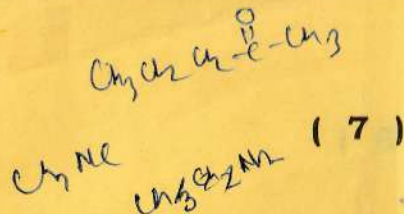 O
||
CH3 CH2 CH2-C-CH3
( 7 )
CH3 NC
CH3CH2NH2